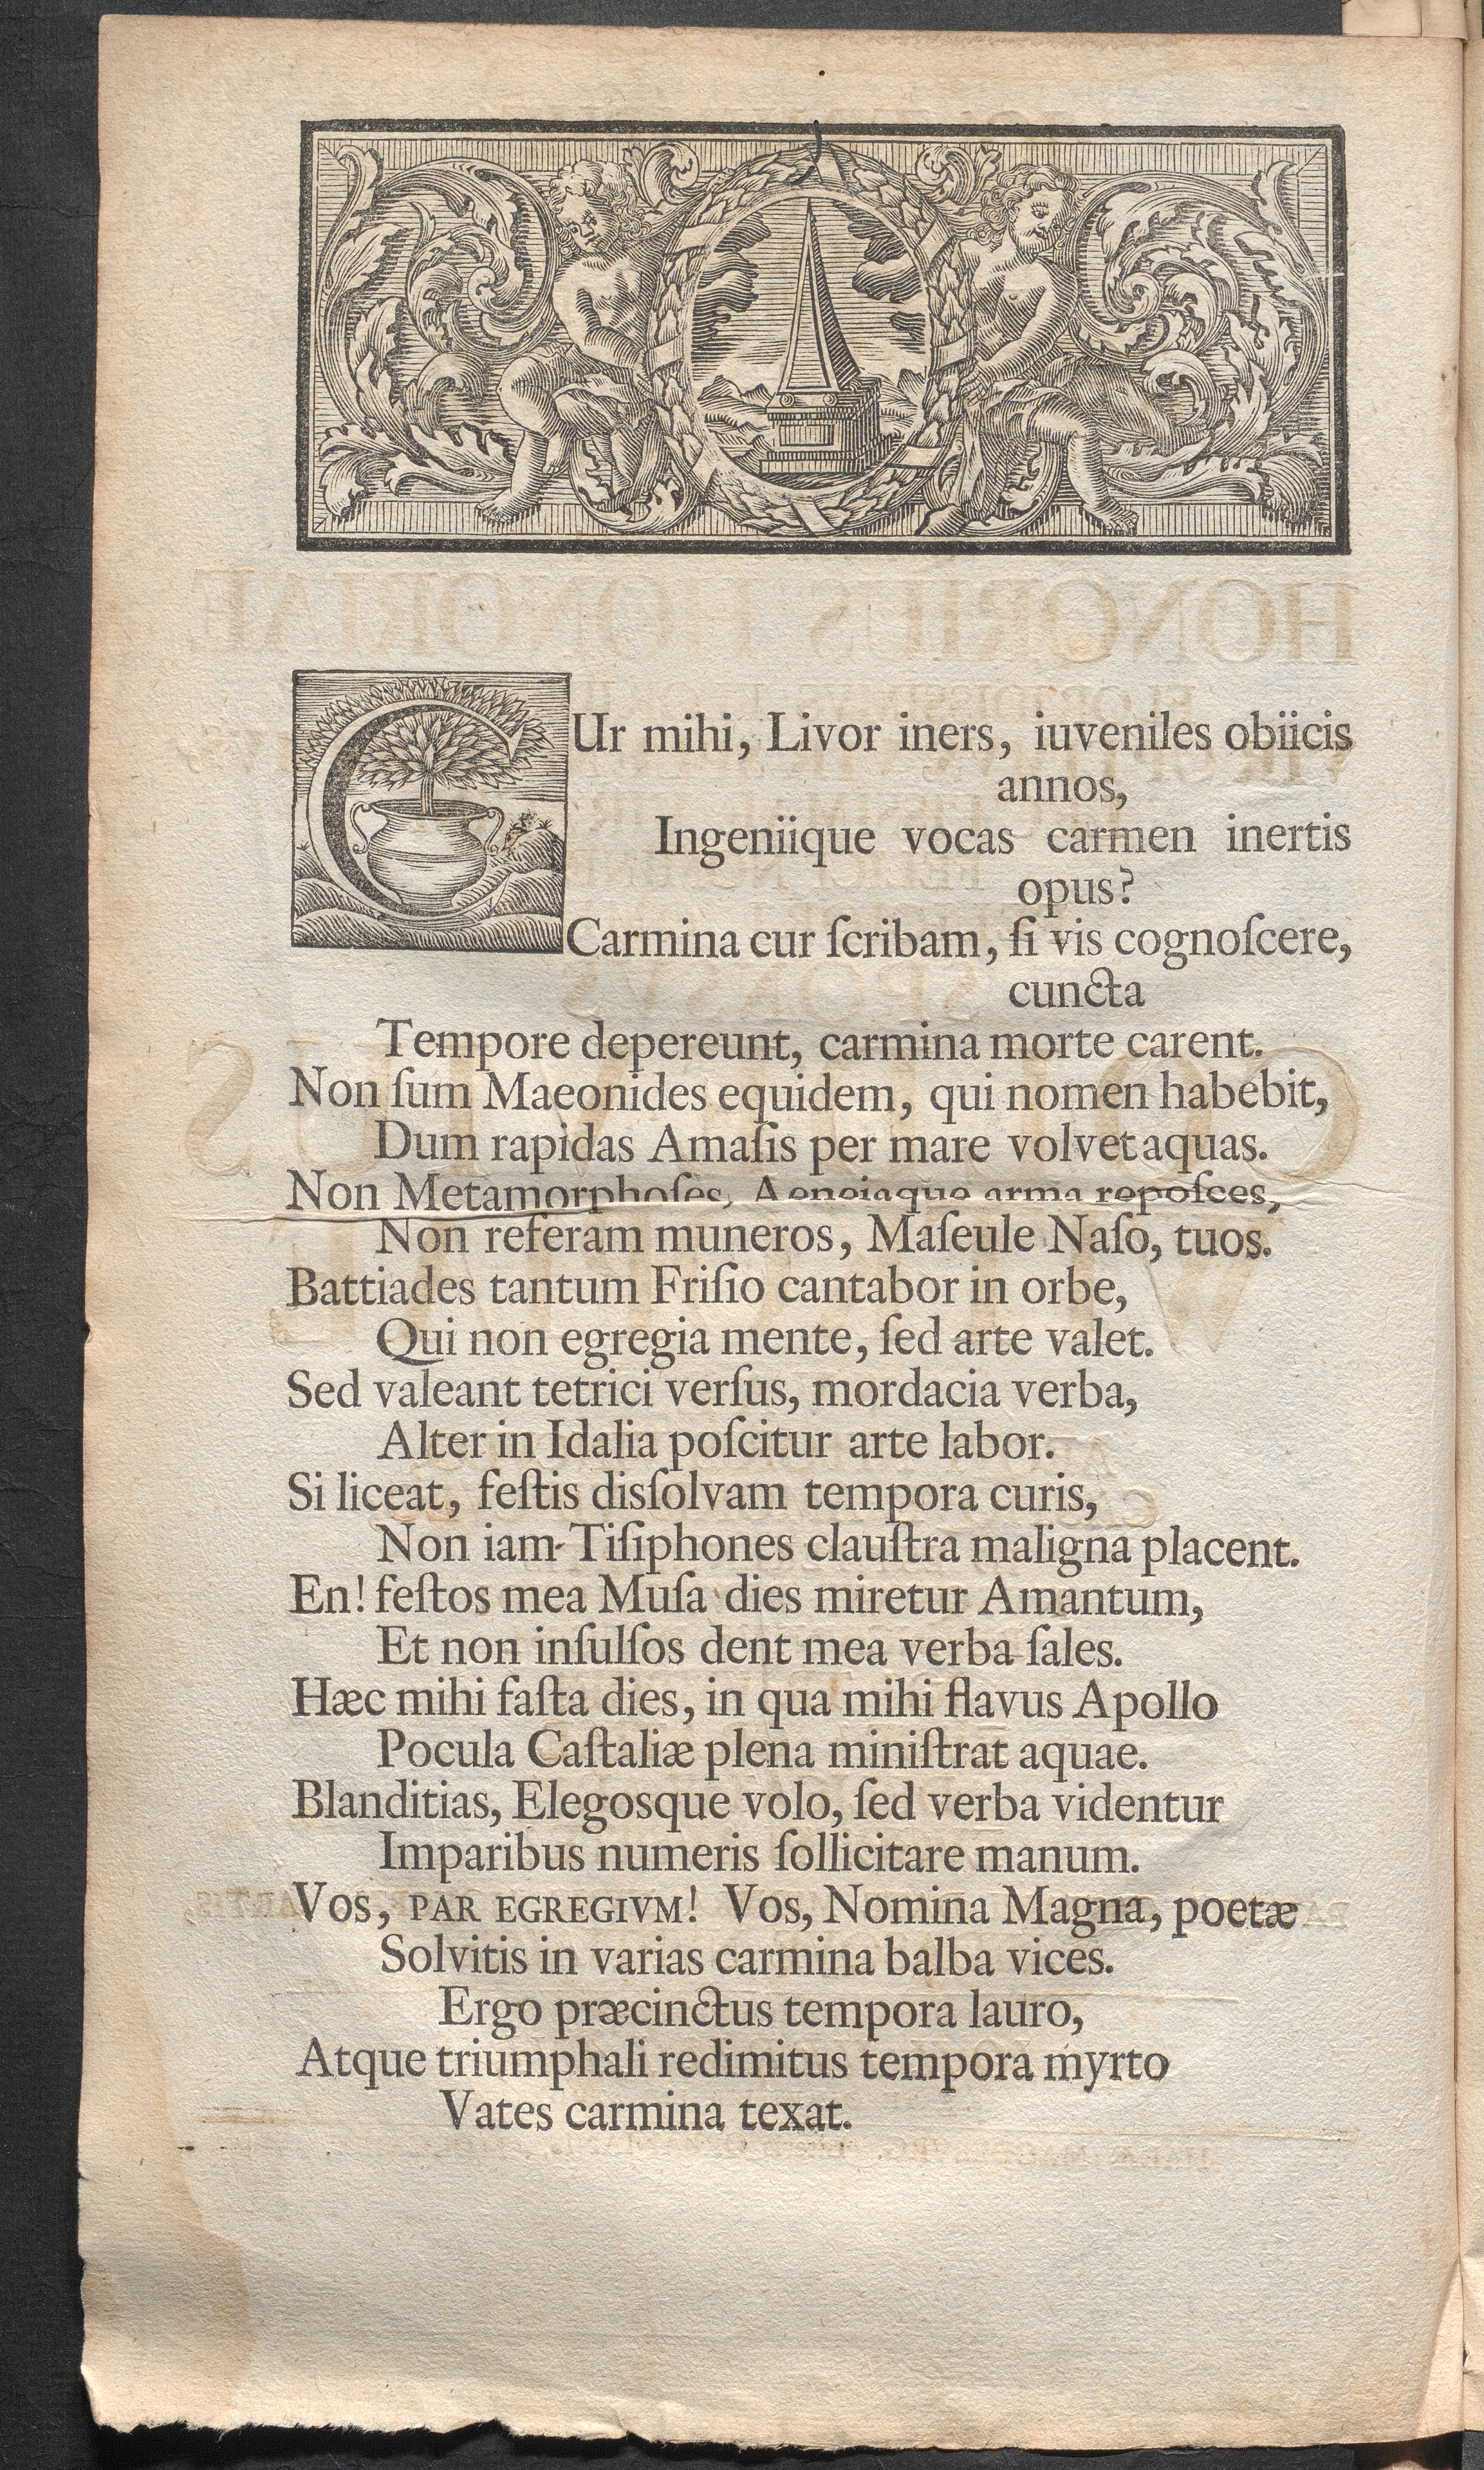 CUr mihi, Livor iners, iuveniles obiicis
annos,
Ingeniique vocas carmen inertis
opus?
Carmina cur ſcribam, ſi vis cognoſcere,
cuncta
Tempore depereunt, carmina morte carent.
Non ſum Maeonides equidem, qui nomen habebit,
Dum rapidas Amaſis per mare volvet aquas.
Non Metamorphoſes, Aeneiaque arma repoſces,
Non referam muneros, Maſeule Naſo, tuos.
Battiades tantum Friſio cantabor in orbe,
Qui non egregia mente, ſed arte valet.
Sed valeant tetrici verſus, mordacia verba,
Alter in Idalia poſcitur arte labor.
Si liceat, feſtis disſolvam tempora curis,
Non iam Tiſiphones clauſtra maligna placent.
En! feſtos mea Muſa dies miretur Amantum,
Et non inſulſos dent mea verba ſales.
Hæc mihi faſta dies, in qua mihi flavus Apollo
Pocula Caſtaliæ plena miniſtrat aquae.
Blanditias, Elegosque volo, ſed verba videntur
Imparibus numeris ſollicitare manum.
Vos, PAR EGREGIVM! Vos, Nomina Magna, poetæ
Solvitis in varias carmina balba vices.
Ergo præcinctus tempora lauro,
Atque triumphali redimitus tempora myrto
Vates carmina texat.